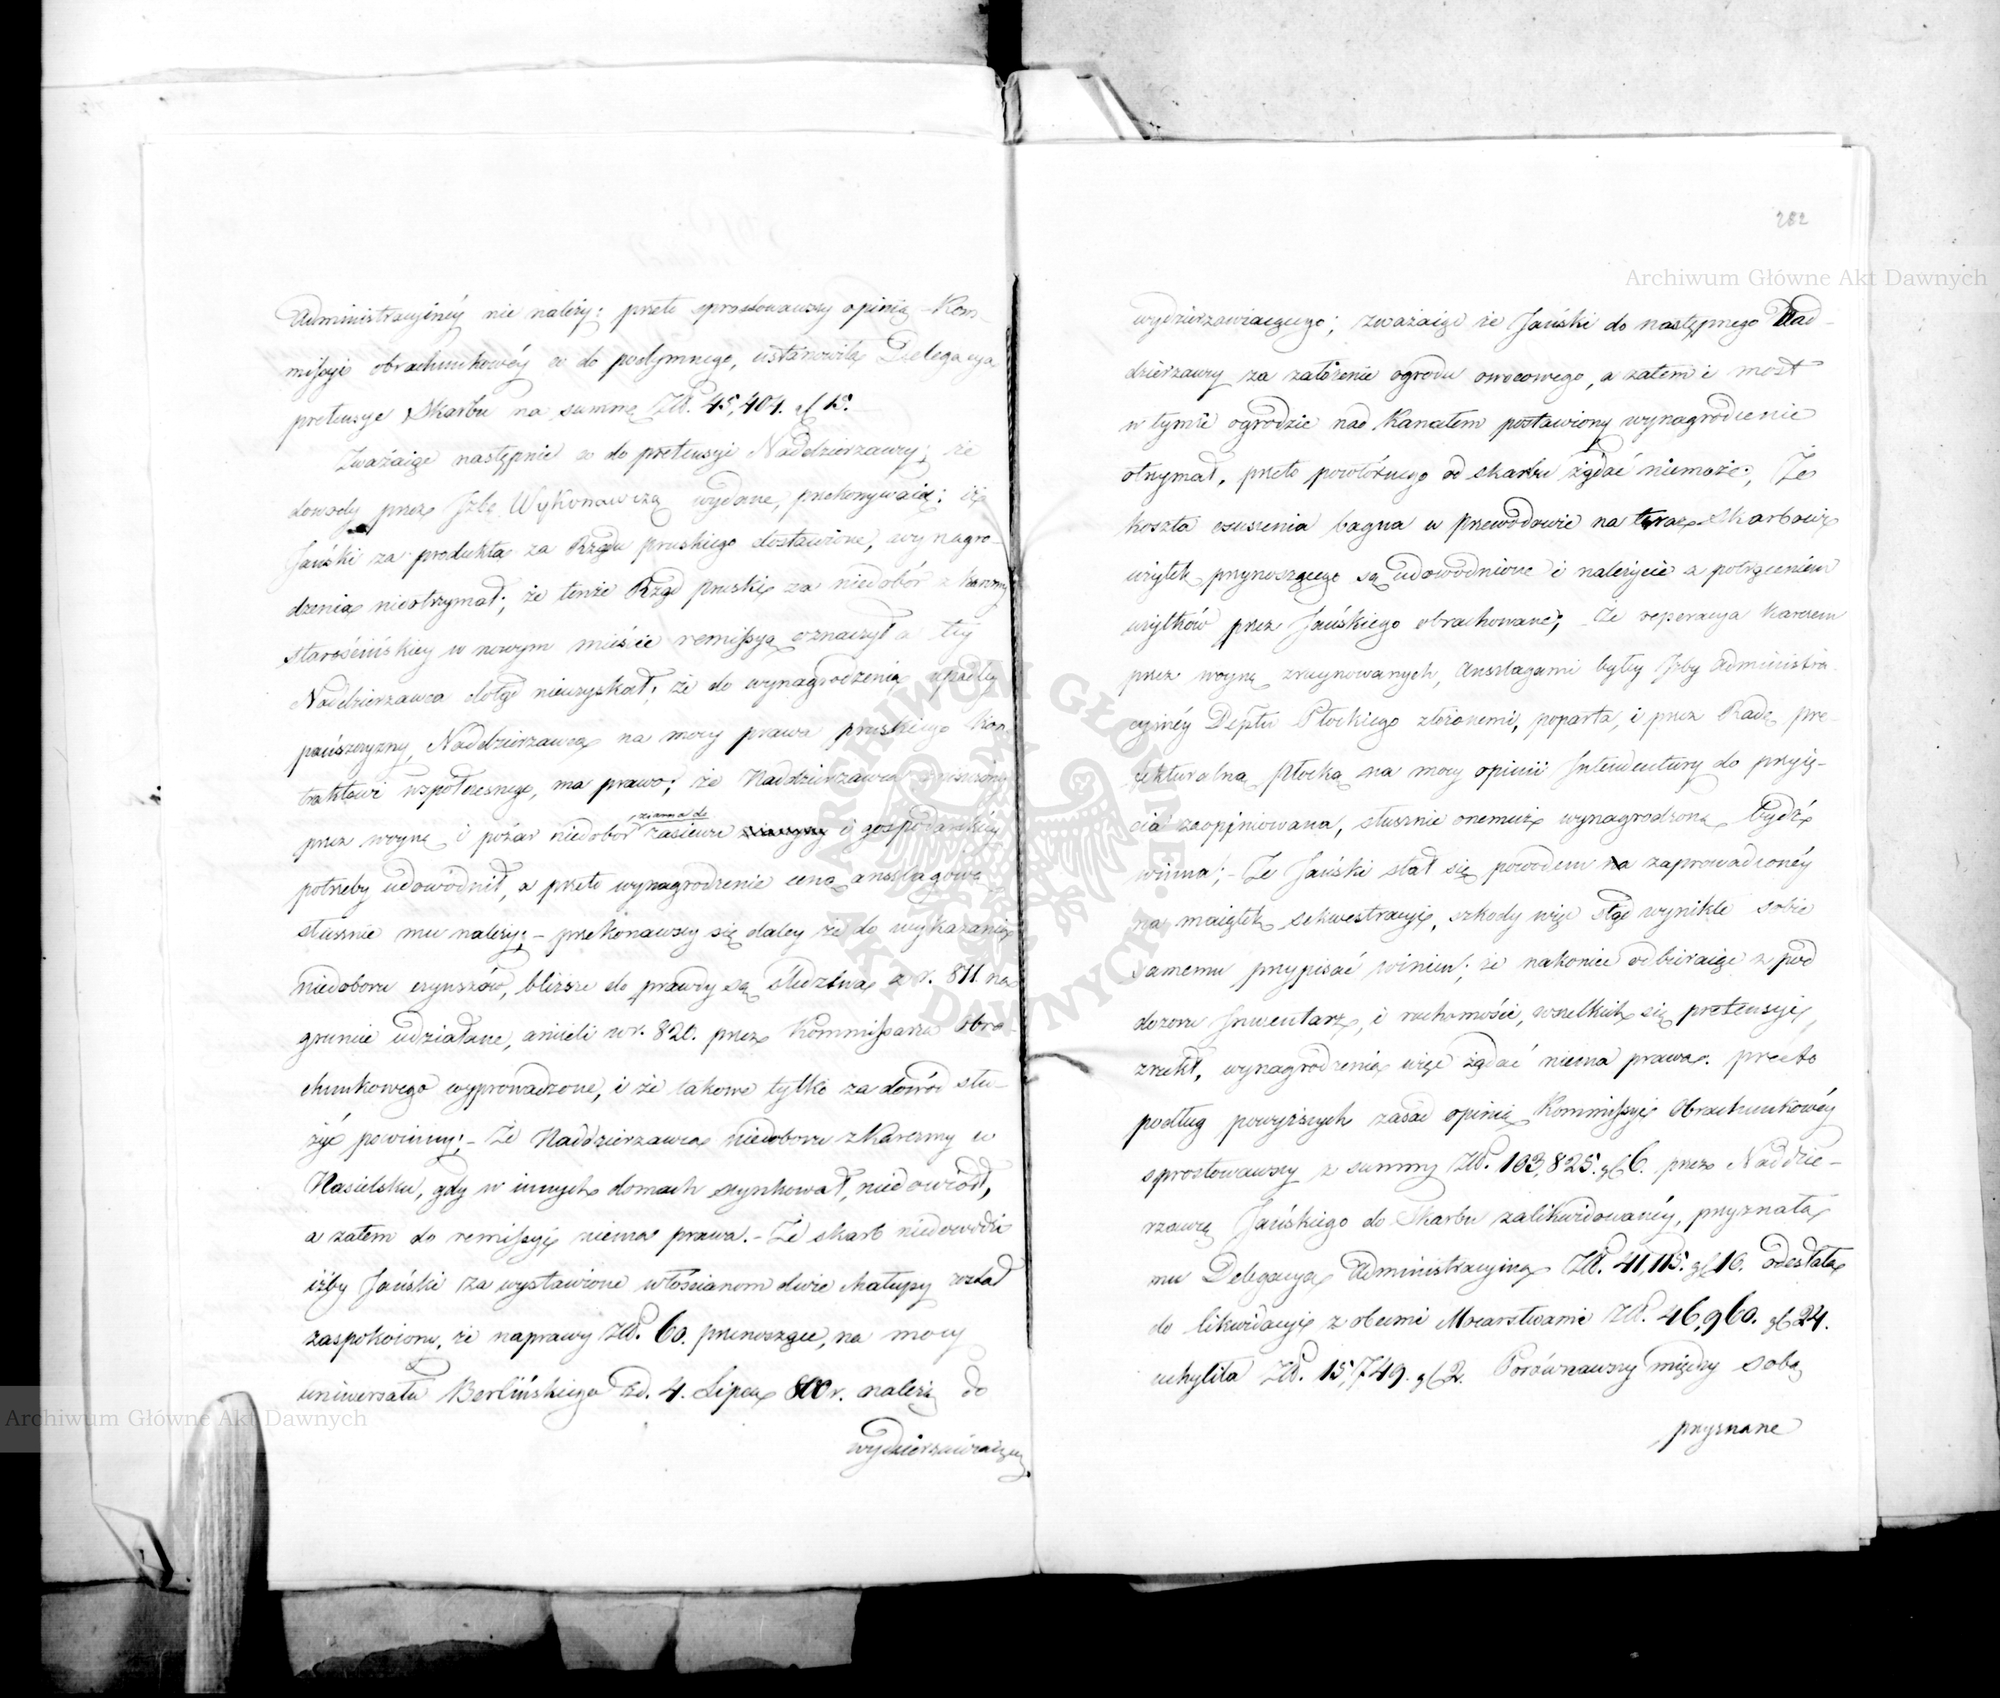 Administracyinéy nie należy; przeto sprostowawszy opinią Kom-
missyi obrachunkowéy co do podymnego, ustanowiła Delegacya
pretensye Skarbu na summę Złł. 45,404. gl 15.
Zważaiąc następnie co do pretensyi Naddzierzawcy; że
dowody przez Izbę Wykonawczą wydane, przekonywaią; iż
Jański za produkta za Rządu pruskiego dostawione, wynagro-
dzenia nieotrzymał; że tenże Rząd pruski za niedobór z karczmy
starościńskiey w nowym mieście remissyą oznaczył a tey
Naddzierzawca dotąd nieuzyskał; że do wynagrodzenia upadłey
pańszczyzny, Naddzierzawca na mocy prawa pruskiego kon-
traktowi współczesnego, ma prawo; że Naddzierzawca zniszczony
ziarna do
przez woynę i pożar niedobór zasiewu i gospodarskiey
potrzeby udowodnił, a przeto wynagrodzenie ceną anszlagową
słusznie mu należy; – przekonawszy się daley że do wykazania
niedoboru czynszów, bliższe do prawdy są śledztwa w r. 811 na
gruncie udziałane, aniżeli w r. 820. przez Kommissarza Obra-
chunkowego wyprowadzone, i że takowe tylko za dowód słu-
żyć powinny; – Że Naddzierzawca niedoboru z Karczmy w
Nasielsku, gdy w innych domach szynkował, niedowiódł,
a zatem do remissyi niema prawa. – Że skarb niedowodzi
iżby Jański za wystawione włościanom dwie chałupy został
zaspokoiony, że naprawy Złł. 60. przenoszące, na mocy
uniwersału Berlińskiego z d. 4. Lipca 800 r. należą do
wydzierzawiaiącego
282
Archiwum Główne Akt Dawnych
wydzierzawiaiącego; zważaiąc że Jański do następnego Nad-
dzierzawcy za założenie ogrodu owocowego, a zatem i most
w tymże ogrodzie nad Kanałem postawiony wynagrodzenie
otrzymał, przeto powtórnego od skarbu żądać niemoże; Że
koszta osuszenia bagna w przewodowie na teraz Skarbowi
użytek przynoszącego są udowodnione i należycie z potrąceniem
użytków przez Jańskiego obrachowane; – Że reperacya Karczem
przez woynę zruynowanych, Anszlagami byłey Izby Administra-
cyinéy Deptu Płockiego złożonemi, poparta, i przez Radę pre-
fekturalną Płocką na mocy opinii Intendentury do przyię-
cia zaopiniowana, słusznie onemuż wynagrodzoną bydź
winna; – Że Jański stał się powodem zaprowadzonéy
na maiątek sekwestracyi, szkody więc stąd wynikłe sobie
samemu przypisać winien; że nakoniec odbieraiąc z pod
dozoru Inwentarz, i ruchomości, wszelkich się pretensyi,
zrzekł, wynagrodzenia więc żądać niema prawa. przeto
podług powyższych zasad opinią Kommissyi Obrachunkowéy
sprostowawszy z summy Złł. 103,825. gl 6. przez Naddzie-
rzawcę Jańskiego do Skarbu zalikwidowanéy, przyznała
mu Delegacya Administracyina Złł. 41,115. gl 16. odesłała
do likwidacyi z obcemi Mocarstwami Złł. 46,960. gl 24.
uchyliła Złł. 15,749. gl 2. Porównawszy między sobą
przyznane
Archiwum Główne Akt Dawnych
ARCHIWUM GŁÓWNE AKT DAWNYCH